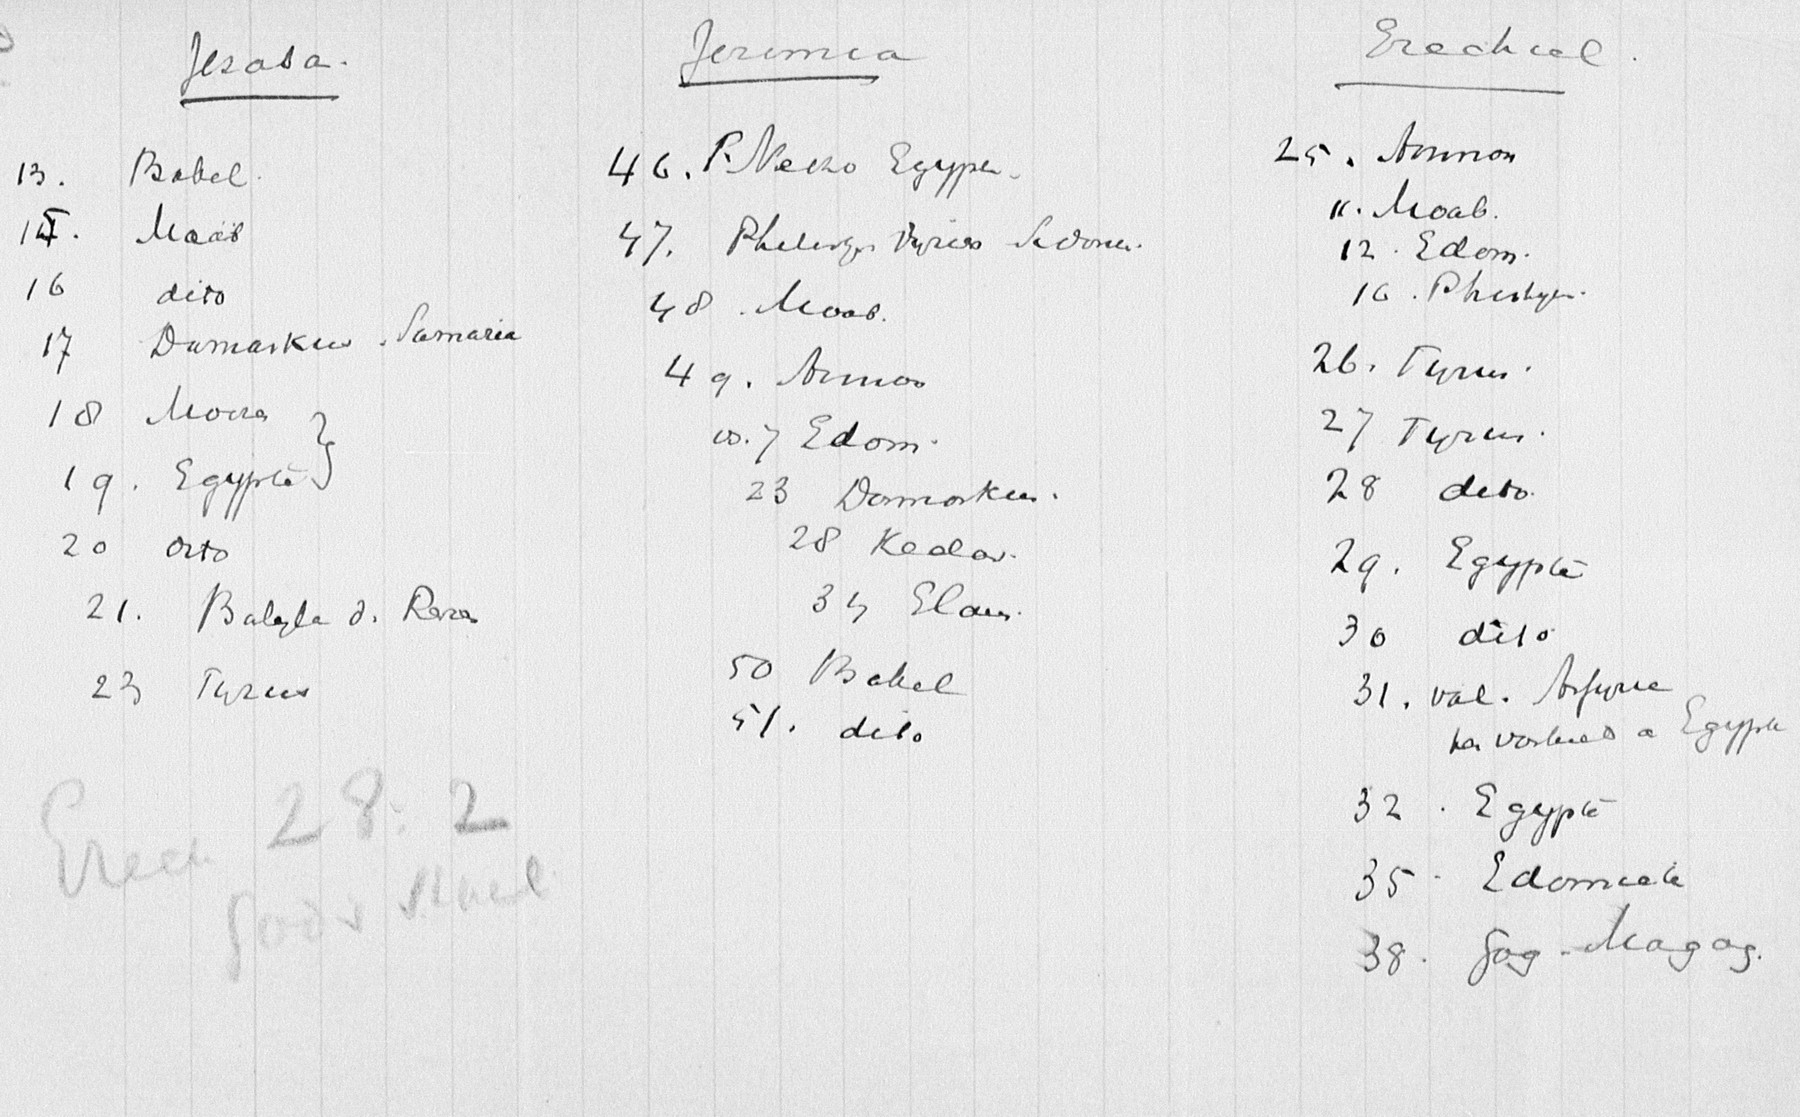 Jesaia.
13. Babel.
15. Moab
16 dito
17 Damaskus. Samaria
18 Moora
19. Egypte
20 dito
21. Babyla d. Reza
23 Tyrus
Ezech 28: 2
Gods
Jeremia
46. P. Necho Egypte.
47. Philistijn Tyrus Sidonn.
48. Moab.
49. Ammon
vs. 7 Edom.
23 Damaskus.
28 Kedar.
34 Elam.
50 Babel
51. dito
Ezechiel.
25. Ammon
11. Moab.
12. Edom.
16. Philistijn.
26. Tyrus.
27 Tyrus.
28 dito.
29. Egypte
30 dito
31. val. Assyrie
voorbeeld a Egypte
32. Egypte
35. Edomiete
38. Gog-Magog.